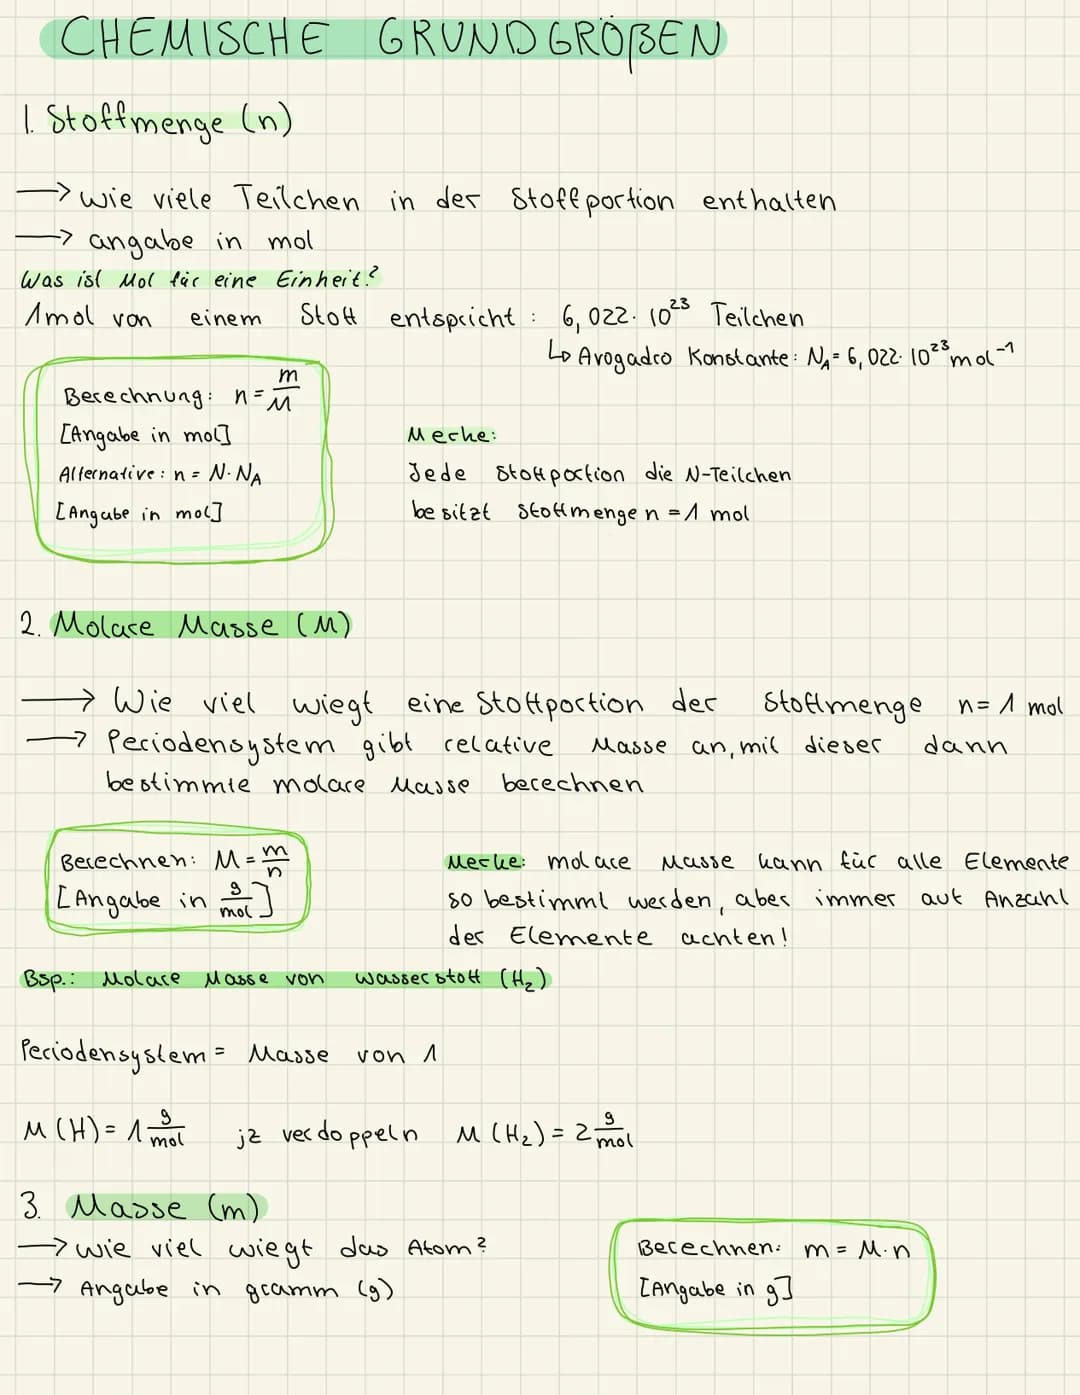 CHEMISCHE GRUNDGRÖßEN
1. Stoffmenge (n)
→ wie viele Teilchen in der Stoffportion enthalten
→ angabe in mol
Was ist Mol für eine Einheit?
1mol von einem Stoff entspricht : 6,022 · 10²³ Teilchen
↳ Avogadro Konstante : N_A = 6,022 · 10²³ mol⁻¹
Berechnung : n = m/M
[Angabe in mol]
Alternative : n = N · N_A
[Angabe in mol]
Merke:
Jede Stoffportion die N-Teilchen
besitzt Stoffmenge n = 1 mol
2. Molare Masse (M)
→ Wie viel wiegt eine Stoffportion der Stoffmenge n = 1 mol
→ Periodensystem gibt relative Masse an, mit dieser dann
bestimmte molare Masse berechnen
Berechnen: M = m/n
[Angabe in g/mol]
Merke: molare Masse kann für alle Elemente
so bestimmt werden, aber immer auf Anzahl
der Elemente achten!
Bsp.: Molare Masse von Wasserstoff (H₂)
Periodensystem = Masse von 1
M (H) = 1 g/mol jz verdoppeln M (H₂) = 2 g/mol
3. Masse (m)
→ wie viel wiegt das Atom?
→ Angabe in gramm (g)
Berechnen: m = M · n
[Angabe in g]